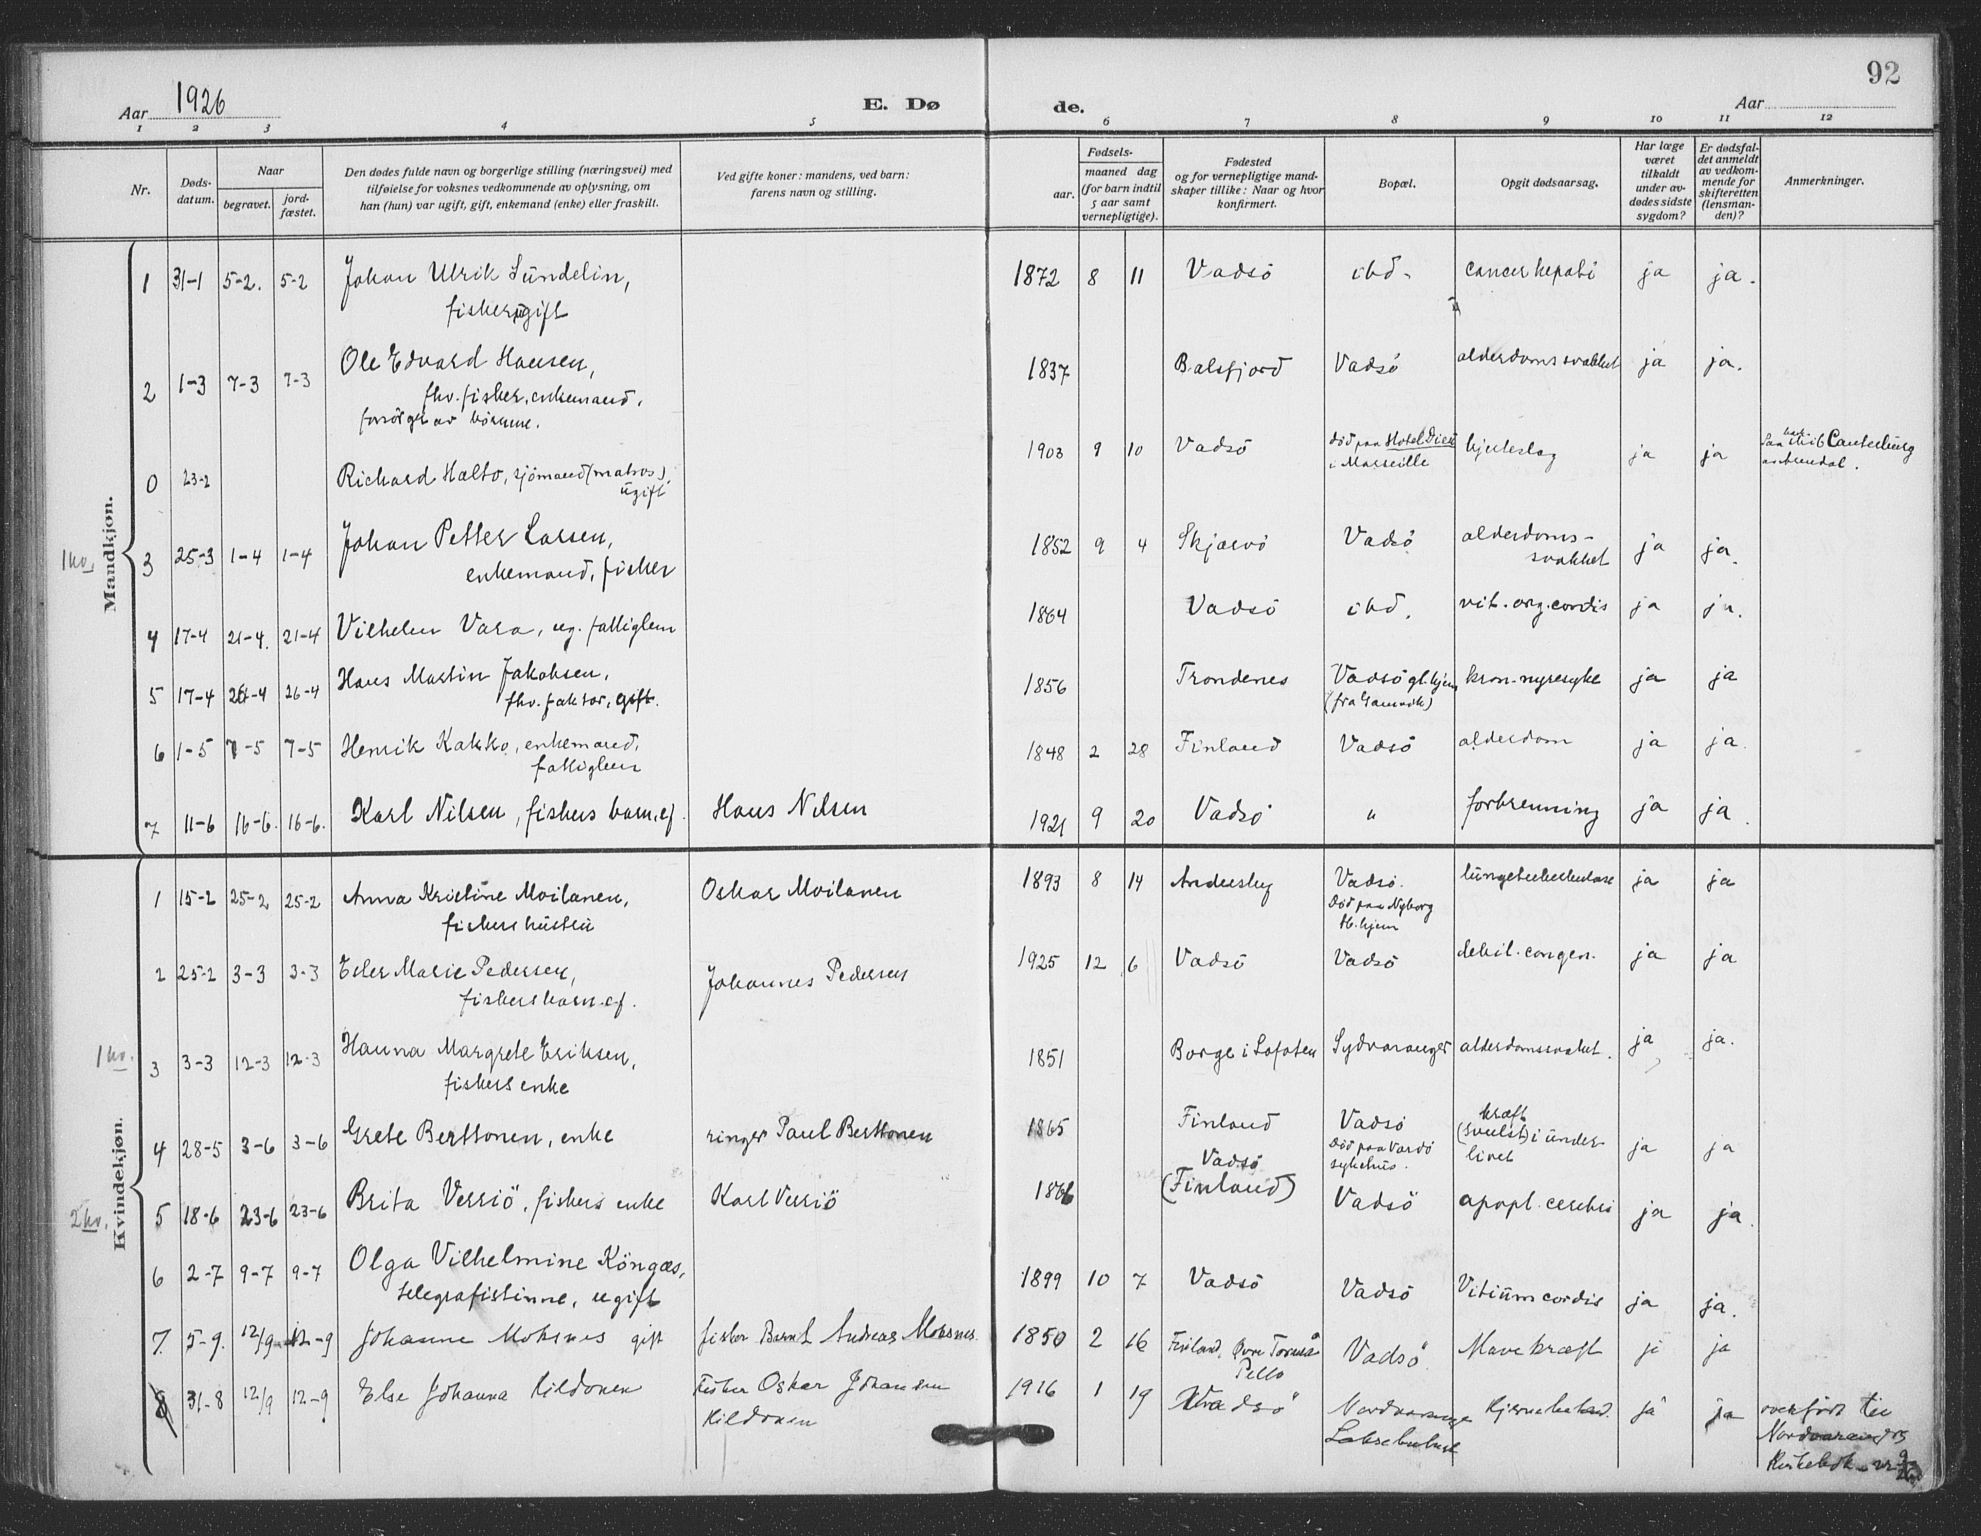 92
Aar 1926 E. Dø de. Aar
1 2 3 4 5 6 7 8 9 10 11 12
Nr.
Døds-
datum.
Naar
begravet.
jord-
fæstet.
Den dødes fulde navn og borgerlige stilling (næringsvei) med
tilføielse for voksnes vedkommende av oplysning, om
han (hun) var ugift, gift, enkemand (enke) eller fraskilt.
Ved gifte koner: mandens, ved barn:
farens navn og stilling.
Fødsels-
aar.
maaned dag
(for barn indtil
5 aar samt
vernepligtige).
Fødested
og for vernepligtige mand-
skaper tillike: Naar og hvor
konfirmert.
Bopæl.
Opgit dødsaarsag.
Har læge
været
tilkaldt
under av-
dødes sidste
sygdom?
Er dødsfal-
det anmeldt
av vedkom-
mende for
skifteretten
(lensman-
den)?
Anmerkninger.
Mandkjøn.
1 31-1 5-2. 5-2 Johan Ulrik Sundelin, 1872 8 11 Vadsö ibd. cancer hepati ja ja.
fisker, ugift
2 1-3 7-3 7-3 Ole Edvard Hansen, 1837 Balsfjord Vadsö alderdomssvakhet ja ja.
fhv. fisker, enkemand,
forsörget av börnene.
0 23-2 Richard Halto, sjömand (matros), 1903 9 10 Vadsö död paa Hotel Dieu hjerteslag ja ja
ugift
i Marseille
Canterburg
1 kv.
3 25-3 1-4 1-4 Johan Petter Larsen, 1852 9 4 Skjærvö Vadsö alderdoms- ja ja.
enkemand, fisker svakhet
4 17-4 21-4. 21-4 Vilhelm Vara, ug. fattiglem 1864 Vadsö ibd. vit. org. cordis ja ja.
5 17-4 26-4 26-4 Hans Martin Jakobsen, 1856 Trondenes Vadsö gl.hjem kron. nyresyke ja ja
fhv. faktor, gift. (fra Gamvik)
6 1-5 7-5 7-5 Henrik Kakko, enkemand, 1848 2 28 Finland Vadsö alderdom ja ja.
fattiglem
7 11-6 16-6. 16-6. Karl Nilsen, fiskers barn, ef. Hans Nilsen 1921 9 20 Vadsö " forbrenning ja ja.
Kvindekjøn.
1 15-2 25-2 25-2 Anna Kristine Moilanen, Oskar Moilanen 1893 8 14 Andersby Vadsö. lungetuberkulose ja ja
fiskers hustru
Död paa Nyborg
tb. hjem
2 25-2 3-3 3-3 Ester Marie Pedersen, Johannes Pedersen 1925 12 6 Vadsö Vadsö debil. congen. ja ja
fiskers barn. ef.
1 kv.
3 3-3 12-3 12-3 Hanna Margrete Eriksen, 1851 Borge i Lofoten Sydvaranger alderdomssvakhet. ja ja.
fiskers enke
4 28-5 3-6 3-6 Grete Berttonen, enke ringer Paul Berttonen 1865 Finland Vadsö kræft ja ja
Död paa Vardö
sykehus.
(svulst) i under-
livet
2 kv.
5 18-6 23-6 23-6 Brita Versiö, fiskers enke Karl Versiö 1866 Vadsö
(Finland) Vadsö apopl. cerebri ja ja.
6 2-7 9-7 9-7 Olga Vilhelmine Köngæs, 1899 10 7 Vadsö Vadsö Vitium cordis ja ja.
telegrafistinne, ugift
7. 5-9. 12/9 12-9 Johanne Moksnes gift fisker Bernt Andreas Moksnes. 1850 2 16 Finland, Övre Torneå Vadsö Mavekræft ja ja
Pello
8 31-8 12/9 12-9 Else Johanna Kildonen Fisker Oskar Johansen 1916 1 19 Vadsö Nordvaranger Hjernebetend. ja ja overfört til
Kildonen
Laksebukt
Nordvarangers
Kirkebok